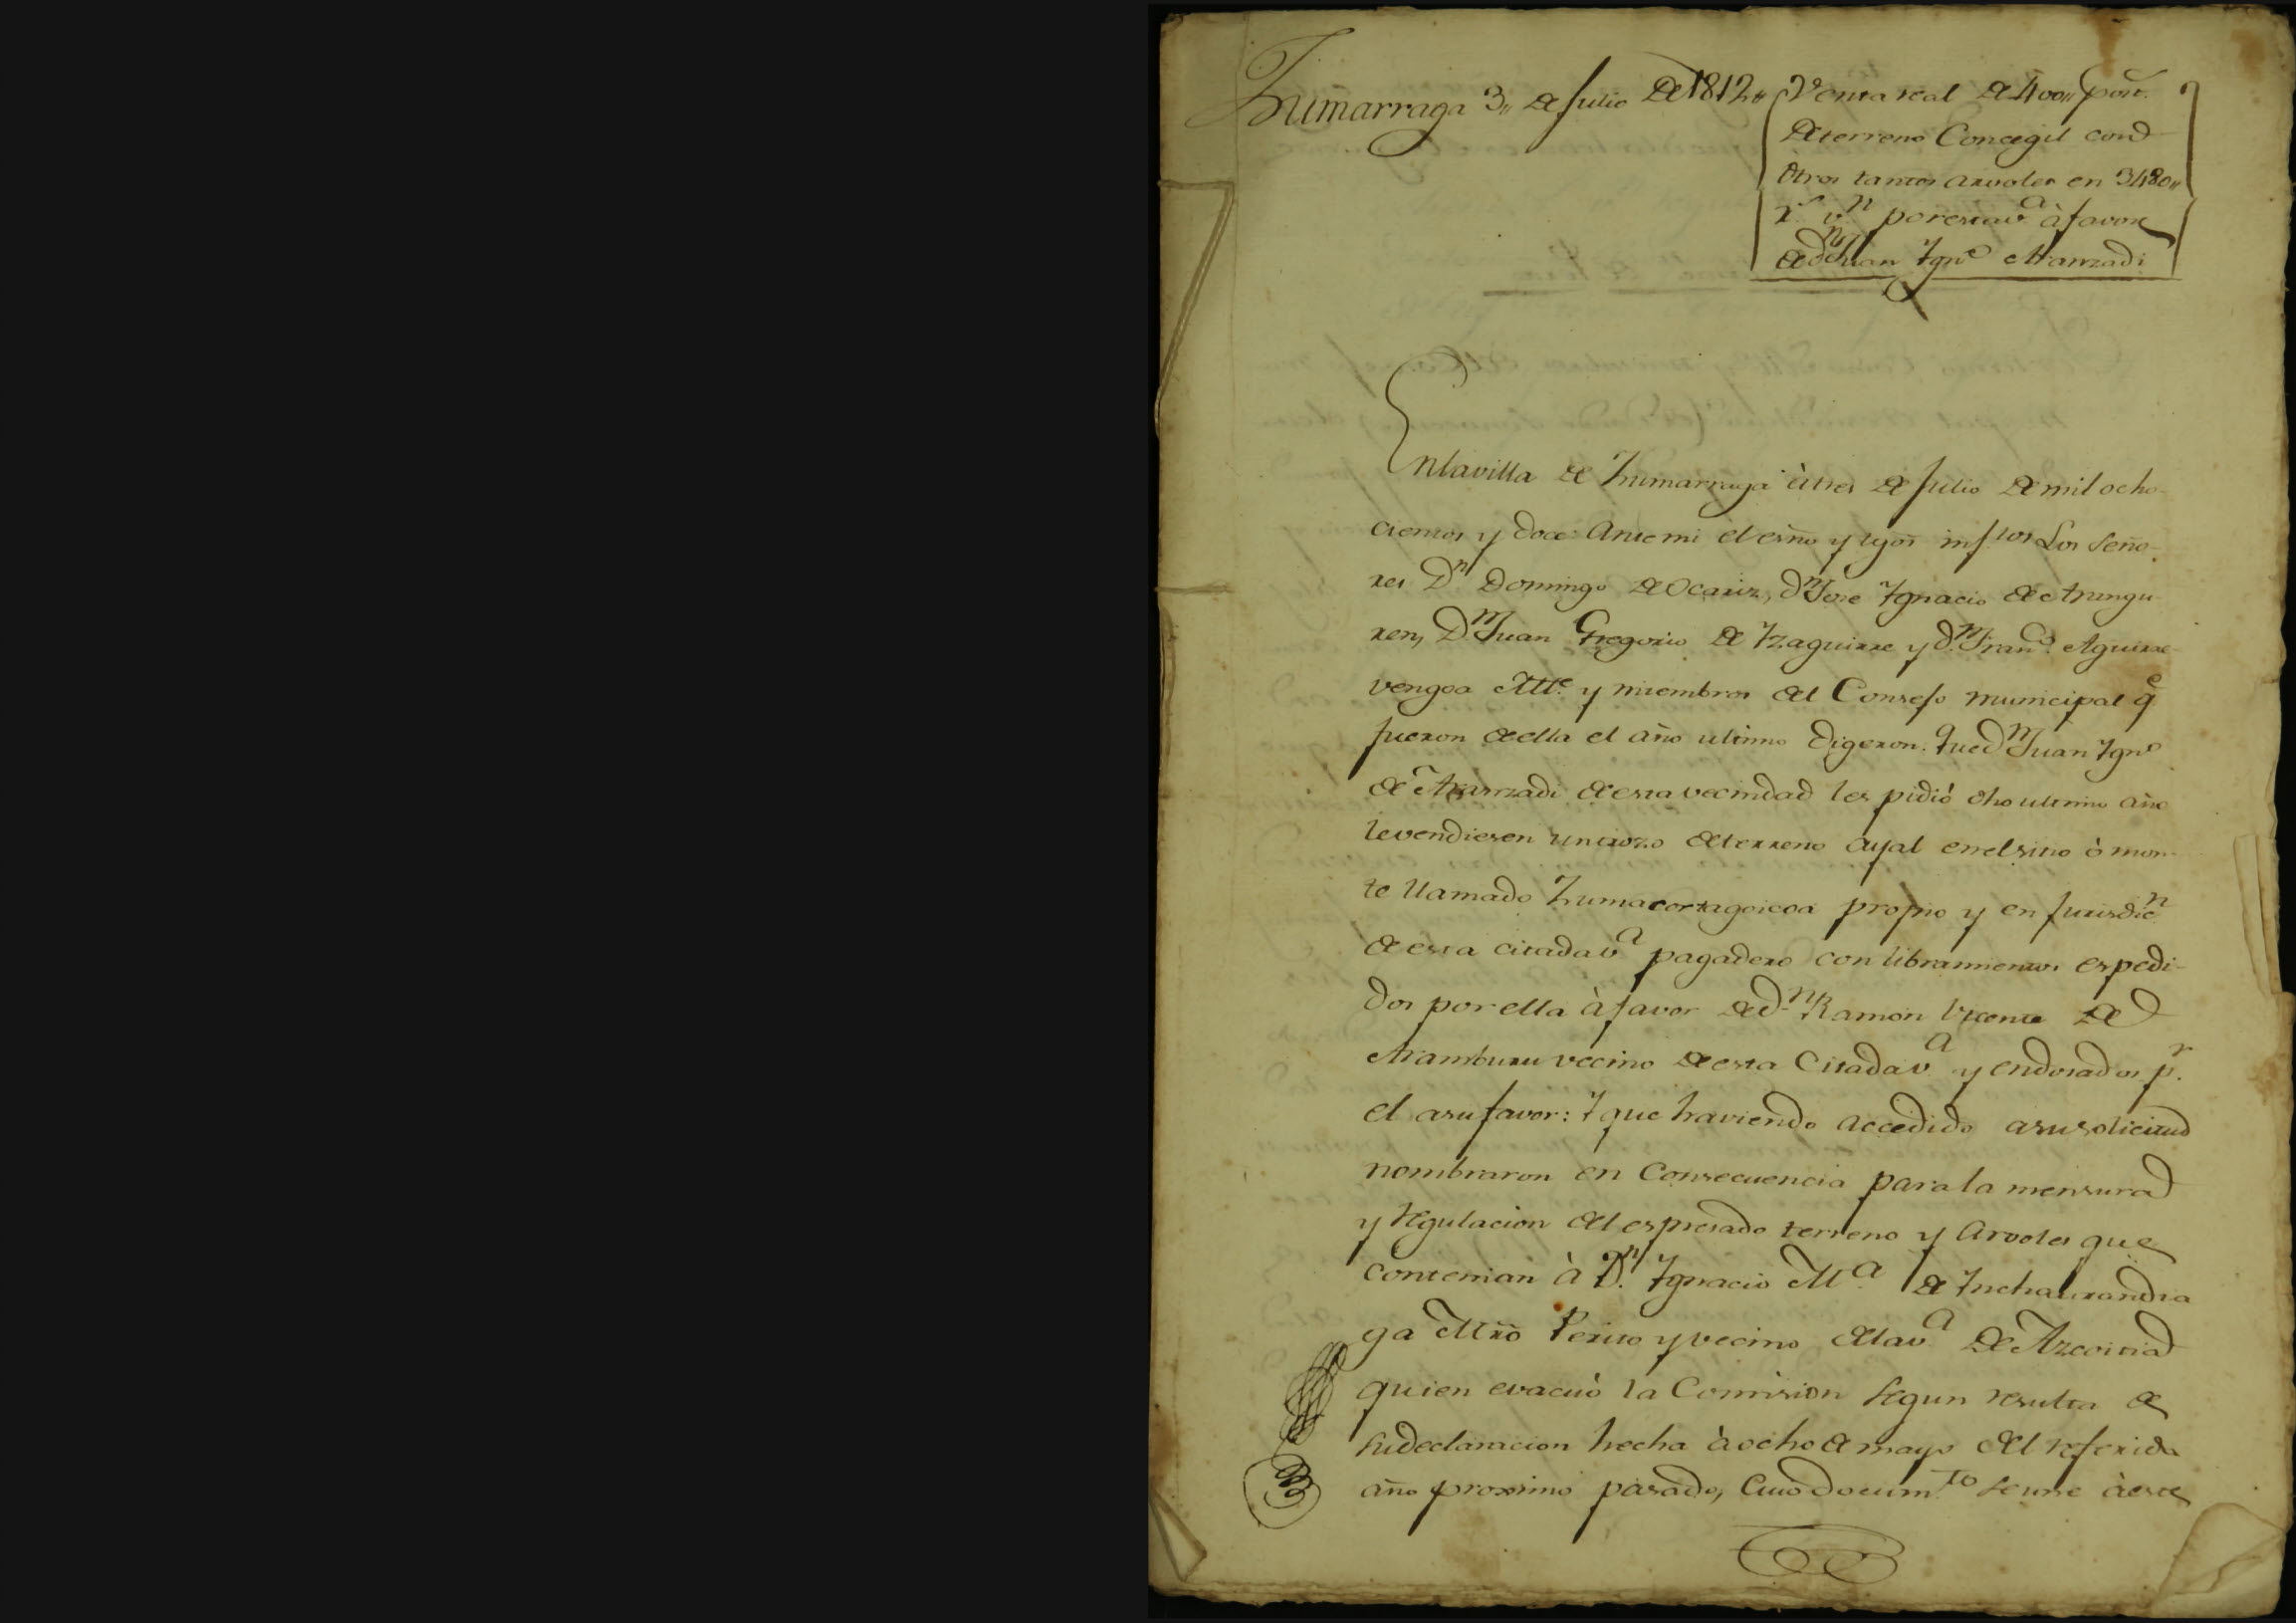 Zumarraga 3,, de Julio de 1812,,
Venta real de 400,, post.
de terreno Concegil con
otros tantos arvoles en 3480,,
rˢ vⁿ por esta vᵃ à favor
de dⁿ Juan Ygnº Aranzadi
En la villa de Zumarraga à tres de Julio de mil ocho-
cientos y doce: Ante mi el esño y tgos inf.tos Los Seño-
res Dⁿ Domingo de Ocariz, dⁿ Jose Ygnacio de Arangu-
ren, Dⁿ Juan Gregorio de Yzaguirre y dⁿ Franᶜᵒ Aguirre-
vengoa Alᵉ y miembros del Consejo municipal qᵉ
fueron de ella el año ultimo digeron. Que dⁿ Juan Ygnº
de Aranzadi de esta vecindad les pidió dho ultimo año
le vendiesen un trozo de terreno ayal en el sitio ò mon-
te llamado Zumacortagoicoa propio y en jurisdicⁿ
de esta citada vᵃ pagadero con libramientos espedi-
dos por ella à favor de dⁿ Ramon Vicente de
Aramburu vecino de esta Citada vᵃ y endosados pʳ
el a su favor: Y que haviendo accedido a su solicitud
nombraron en Consecuencia para la mensura
y regulacion del espresado terreno y arvoles que
contenian à Dⁿ Ygnacio Mᵃ de Ynchaurandia
ga Mro Perito y vecino de la vᵃ de Azcoitia
quien evacuó la Comision segun resulta de
su declaracion hecha à ocho de mayo del referido
año proximo pasado, Cuio documᵗᵒ se une à este